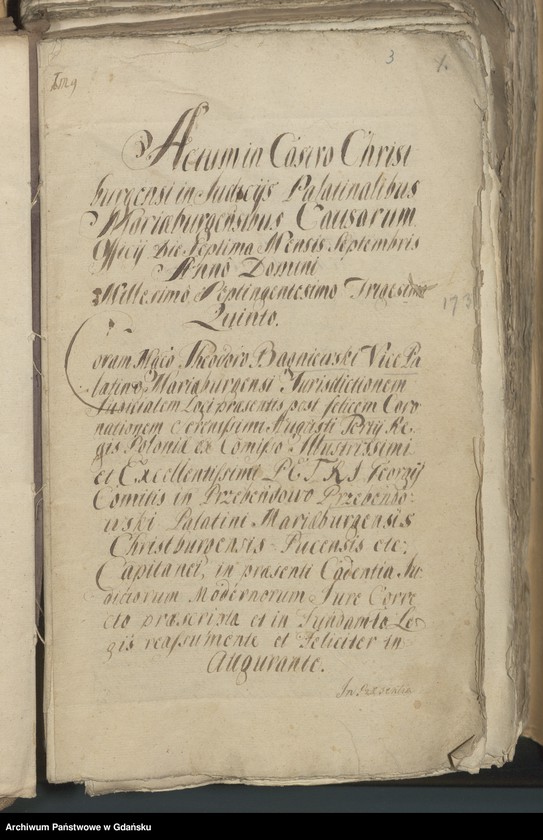 3
1.
Actum in Castro Christ
burgensi in Judicijs Palatinalibus
Mariaburgensibus Causarum
Officij Die Septima Mensis Septembris
Anno Domini
Millesimo Septingentesimo Trigesimo
173
Quinto.
Coram Mgco Theodoro Bagniewski Vice Pa
latino Mariaburgensi Jurisdictionem
Loci praesentis post felicem Coro
nationem Serenissimi Augusti Tertij Re
gis Poloniae ex Comisso Illustrissimi
et Excellentissimi PETRI Georgij
Comitis in Przebendowo Przebendo
wski Palatini Mariaeburgensis
Christburgensis Pucensis etc;
Capitanei, in praesenti Cadentia Ju
diciorum Modernorum Jure Corre
cto praescripta et in fundamto Le
gis reassumente et feliciter in
Augurante.
In Praesentia
Archiwum Państwowe w Gdańsku